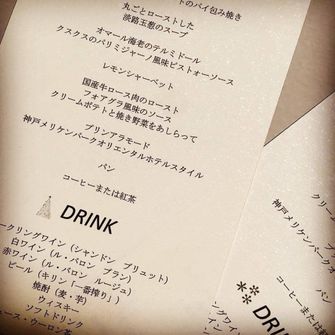 トのパイ包み焼き
丸ごとローストした
淡路玉葱のスープ
オマール海老のテルミドール
クスクスのパリミジャーノ風味ピストゥーソース
レモンシャーベット
国産牛ロース肉のロースト
フォアグラ風味のソース
クリームポテトと焼き野菜をあしらって
プリンアラモード
神戸メリケンパークオリエンタルホテルスタイル
パン
コーヒーまたは紅茶
DRINK
ークリングワイン（シャンドン ブリュット）
白ワイン（ル・バロン ブラン）
赤ワイン（ル・バロン ルージュ）
ビール（キリン「一番搾り」）
焼酎（麦・芋）
ウィスキー
ソフトドリンク
ュース・ウーロン茶
神戸メリケンパーク
コーヒ
** DR
ークリングワイン（シ
白ワイン（ル
赤ワイン（ル・
ビール（キ
焼酎